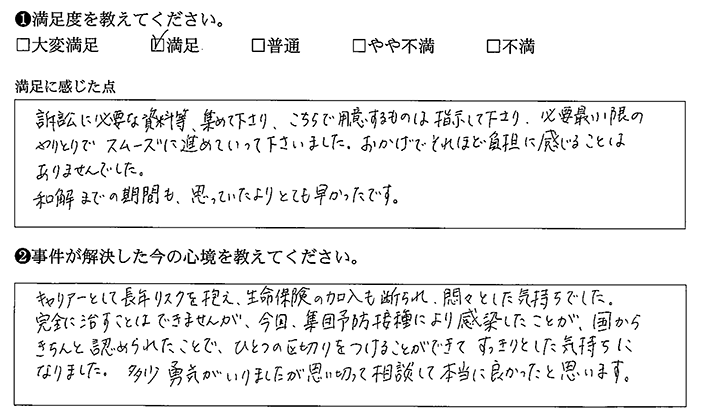 ❶満足度を教えてください。
□大変満足 ☑満足 □普通 □やや不満 □不満
満足に感じた点
訴訟に必要な資料等、集めて下さり、こちらで用意するものは指示して下さり、必要最小限の
やりとりで スムーズに進めていって下さいました。おかげでそれほど負担に感じることは
ありませんでした。
和解までの期間も、思っていたよりとても早かったです。
❷事件が解決した今の心境を教えてください。
キャリアーとして長年リスクを抱え、生命保険の加入も断られ、悶々とした気持ちでした。
完全に治すことはできませんが、今回、集団予防接種により感染したことが、国から
きちんと認められたことで、ひとつの区切りをつけることができて すっきりとした気持ちに
なりました。 多少勇気がいりましたが思い切って相談して本当に良かったと思います。